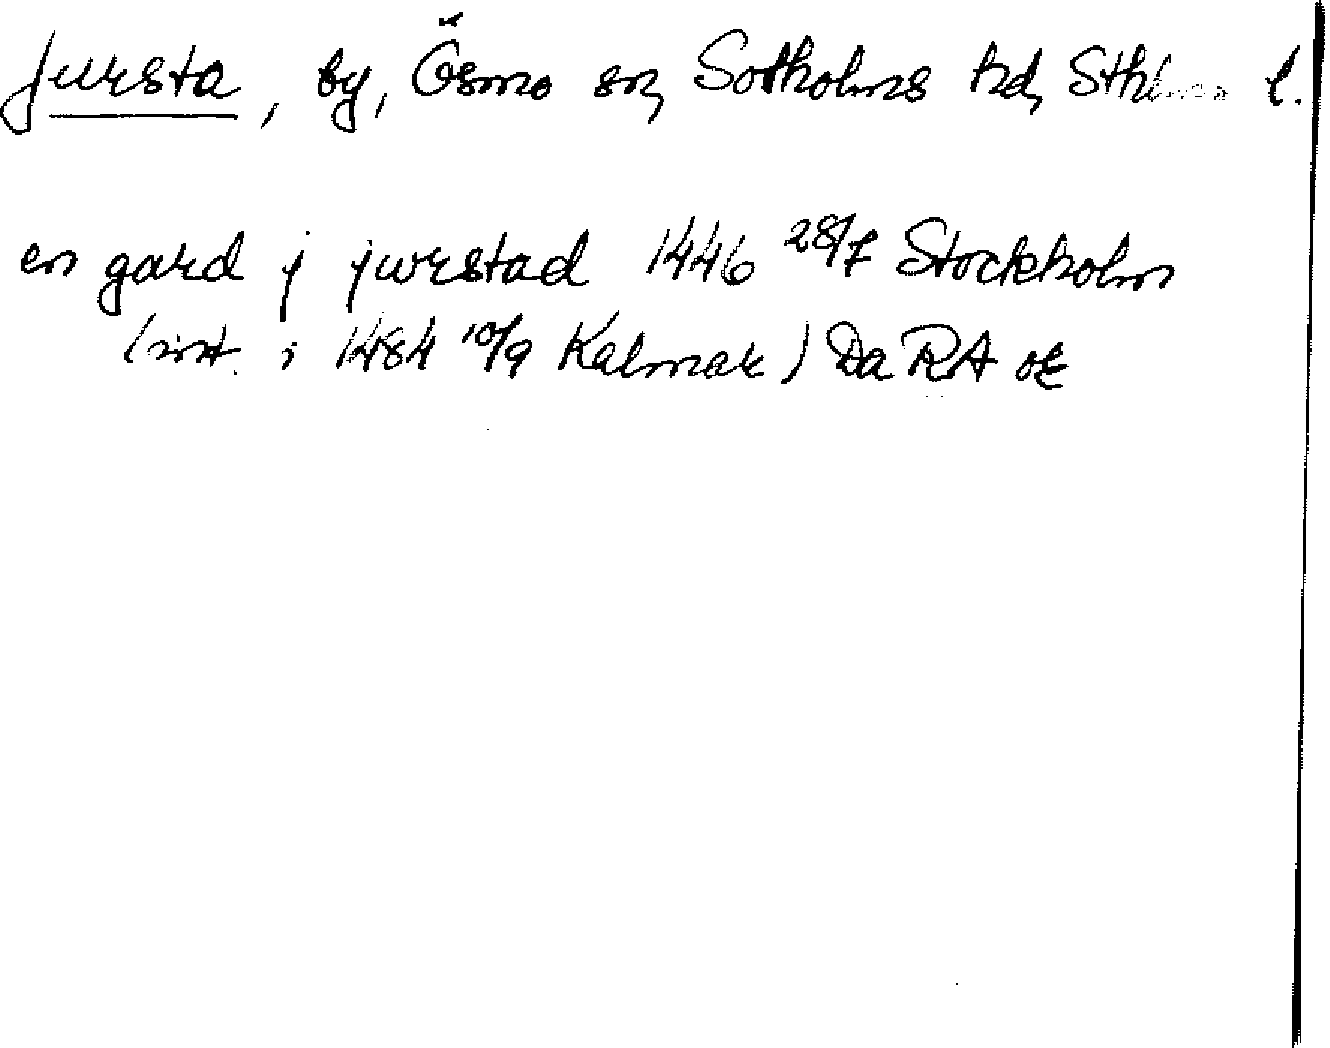 Jursta, by, Ösmo sn, Sotholms hd, Sthlms l.
en gard j jwrstad 1446 28/7 Stockholm
(int. i 1484 10/9 Kalmar) Da RA or